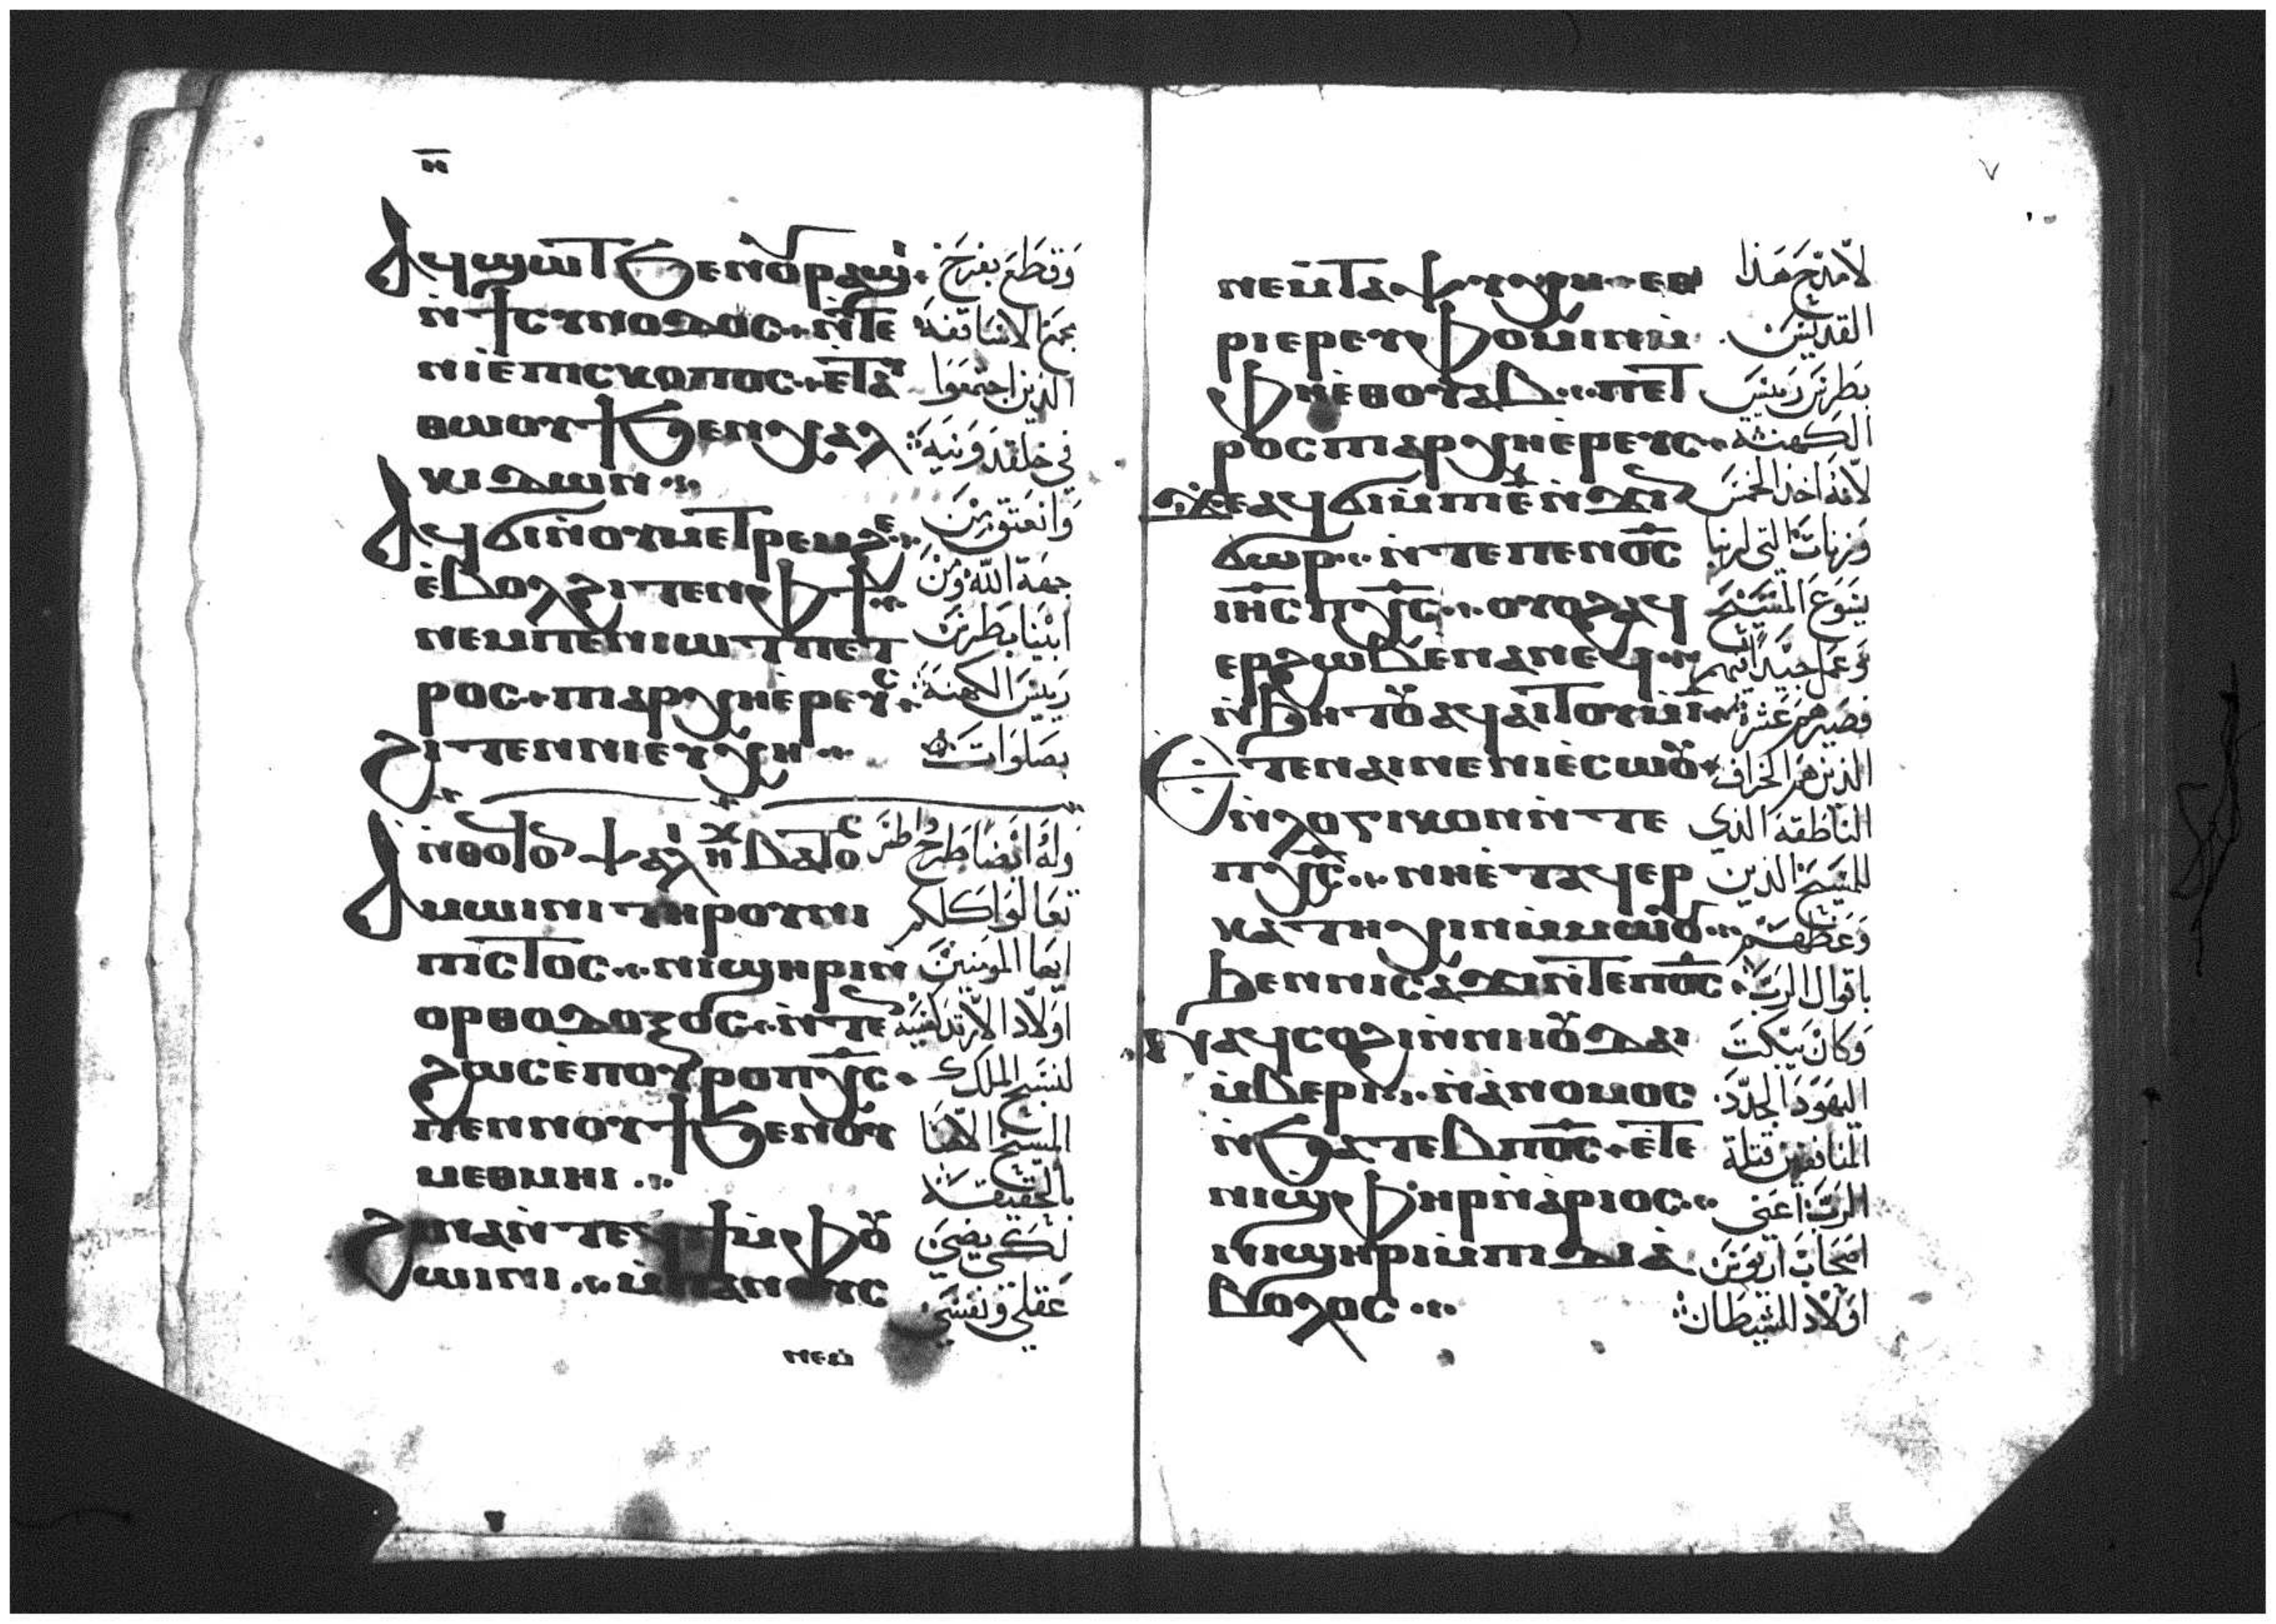 ⲏ̅
Ⲁϥϣⲱⲧ ϧⲉⲛⲟⲩⲣⲁϣⲓ وقطع بفرح
ⲛ̀ϯⲥⲩⲛⲟⲇⲟⲥ ⲛ̀ⲧⲉ مجمع الاساقفة
ⲛⲓⲉ̀ⲡⲓⲥⲕⲟⲡⲟⲥ ⲉ̀ⲧⲁⲩ الذين اجتمعوا
ⲑⲱⲟⲩϯ ϧⲉⲛⲭⲁⲗ في خلقدونية
ⲕⲓⲇⲱⲛ
Ⲁϥϭⲓⲛ̀ⲟⲩⲙⲉⲧⲣⲉⲙϩⲉ وانعتق من
ⲉ̀ⲃⲟⲗϩⲓⲧⲉⲛⲫϯ جهة الله ومن
ⲛⲉⲙⲡⲉⲛⲓⲱⲧ ⲡⲉⲧ ابينا بطرس
ⲣⲟⲥ ⲡⲓⲁⲣⲭⲏⲉ̀ⲣⲉⲩⲥ رييس الكهنة
ϩⲓⲧⲉⲛⲛⲓⲉⲩⲭⲏ بصلوات
ⲛ̀ⲑⲟϥ ⲟⲛ ⲯⲁⲗⲓ ⲏⲭ ⲃⲁⲧⲟⲥ وله ايضا طرح واطس
Ⲁⲙⲱⲓⲛⲓ ⲧⲏⲣⲟⲩ ⲛⲓ تعالوا كلكم
ⲡⲓⲥⲧⲟⲥ ⲛⲓϣⲏⲣⲓⲛ ايها المومنين
ⲟⲣⲑⲟⲇⲟⲝⲟⲥ ⲛ̀ⲧⲉⲛ اولاد الارتدكسية
ϩⲱⲥ ⲉ̀ⲡⲟⲩⲣⲟ ⲡⲭ̅ⲥ̅ لنسبح الملك
ⲡⲉⲛⲛⲟⲩϯ ϧⲉⲛⲟⲩ المسيح الاهنا
ⲙⲉⲑⲙⲏⲓ بالحقيقة
ϩⲓⲛⲁ ⲛ̀ⲧⲉϥϯⲙ̀ⲫⲟⲩ لكى يضى
ⲱⲓⲛⲓ ⲙ̀ⲡⲁⲛⲟⲩⲥ عقلي ونفسي
ⲛⲉⲙ
٧
ⲛⲉⲙⲧⲁⲯⲩⲭⲏ ⲉⲑ لامتدح هذا
ⲣⲓⲉⲣⲉⲩⲫⲟⲙⲓⲛ ⲙ̀ القديس
ⲫⲏⲉⲑⲟⲩⲁⲃ ⲡⲉⲧ بطرس رييس
ⲣⲟⲥ ⲡⲓⲁⲣⲭⲏⲉ̀ⲣⲉⲩⲥ الكهنة
ϫⲉ ⲁϥϭⲓ ⲙ̀ⲡⲓⲉ̅ ⲛ̀ϫⲓⲛ لانه اخذ الخمس
ϭⲱⲣ ⲛ̀ⲧⲉ ⲡⲉⲛⲟ̅ⲥ̅ وزنات التي لربنا
ⲓⲏ̅ⲥ̅ ⲡⲭ̅ⲥ̅ ⲟⲩⲟϩ ⲁϥ يسوع المسيح
ⲉⲣϩⲱⲃ ⲉⲛⲁⲛⲉϥ وعمل جيدا بهم
ⲛ̀ϧⲏⲧⲟⲩ ⲁϥⲁⲓⲧⲟⲩ ⲙ̀ⲓ̅ فصيرهم عشرة
Ⲉⲧⲉⲛⲁⲓⲛⲉ ⲛⲓⲉ̀ⲥⲱⲟⲩ الذين هم الخراف
ⲛ̀ⲗⲟⲅⲓⲕⲟⲛ ⲛ̀ⲧⲉ الناطقة الذي
ⲡⲭ̅ⲥ̅ ⲛⲏⲉ̀ⲧⲁϥⲉⲣ للمسيح الذين
ⲕⲁⲧⲏⲭⲓⲛ ⲙ̀ⲙⲱⲟⲩ وعظهم
ϧⲉⲛⲛⲓⲥⲁϫⲓ ⲛ̀ⲧⲉⲡⲟ̅ⲥ̅ باقوال الرب
Ⲛⲁϥⲥⲟϩⲓ ⲛ̀ⲛⲓⲓⲟⲩⲇⲁⲓ وكان يبكت
ⲙ̀ⲃⲉⲣⲓ ⲛ̀ⲁ̀ⲛⲟⲙⲟⲥ اليهود الجدد
ⲛ̀ϧⲁⲧⲉⲃⲡⲟ̅ⲥ̅ ⲉ̀ⲧⲉ المنافقين قتلة
ⲛⲓϣⲫⲏⲣ ⲛ̀ⲁ̀ⲣⲓⲟⲥ الرب اعني
ⲛⲓϣⲏⲣⲓ ⲙ̀ⲡⲓⲇⲓⲁ̀ اصحاب اريوس
ⲃⲟⲗⲟⲥ اولاد للشيطان